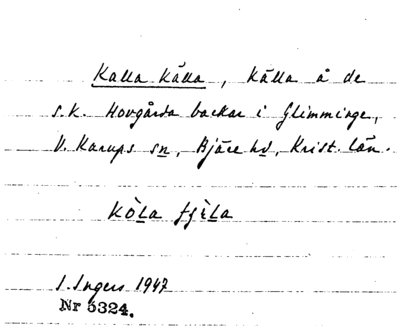 Kalla Källa, källa å de
s.k. Hovgårda backar i Glimminge,
V. Karups sn, Bjäre hd, Krist. län.
kòla fjèla
I. Ingers 1947
Nr 5324.